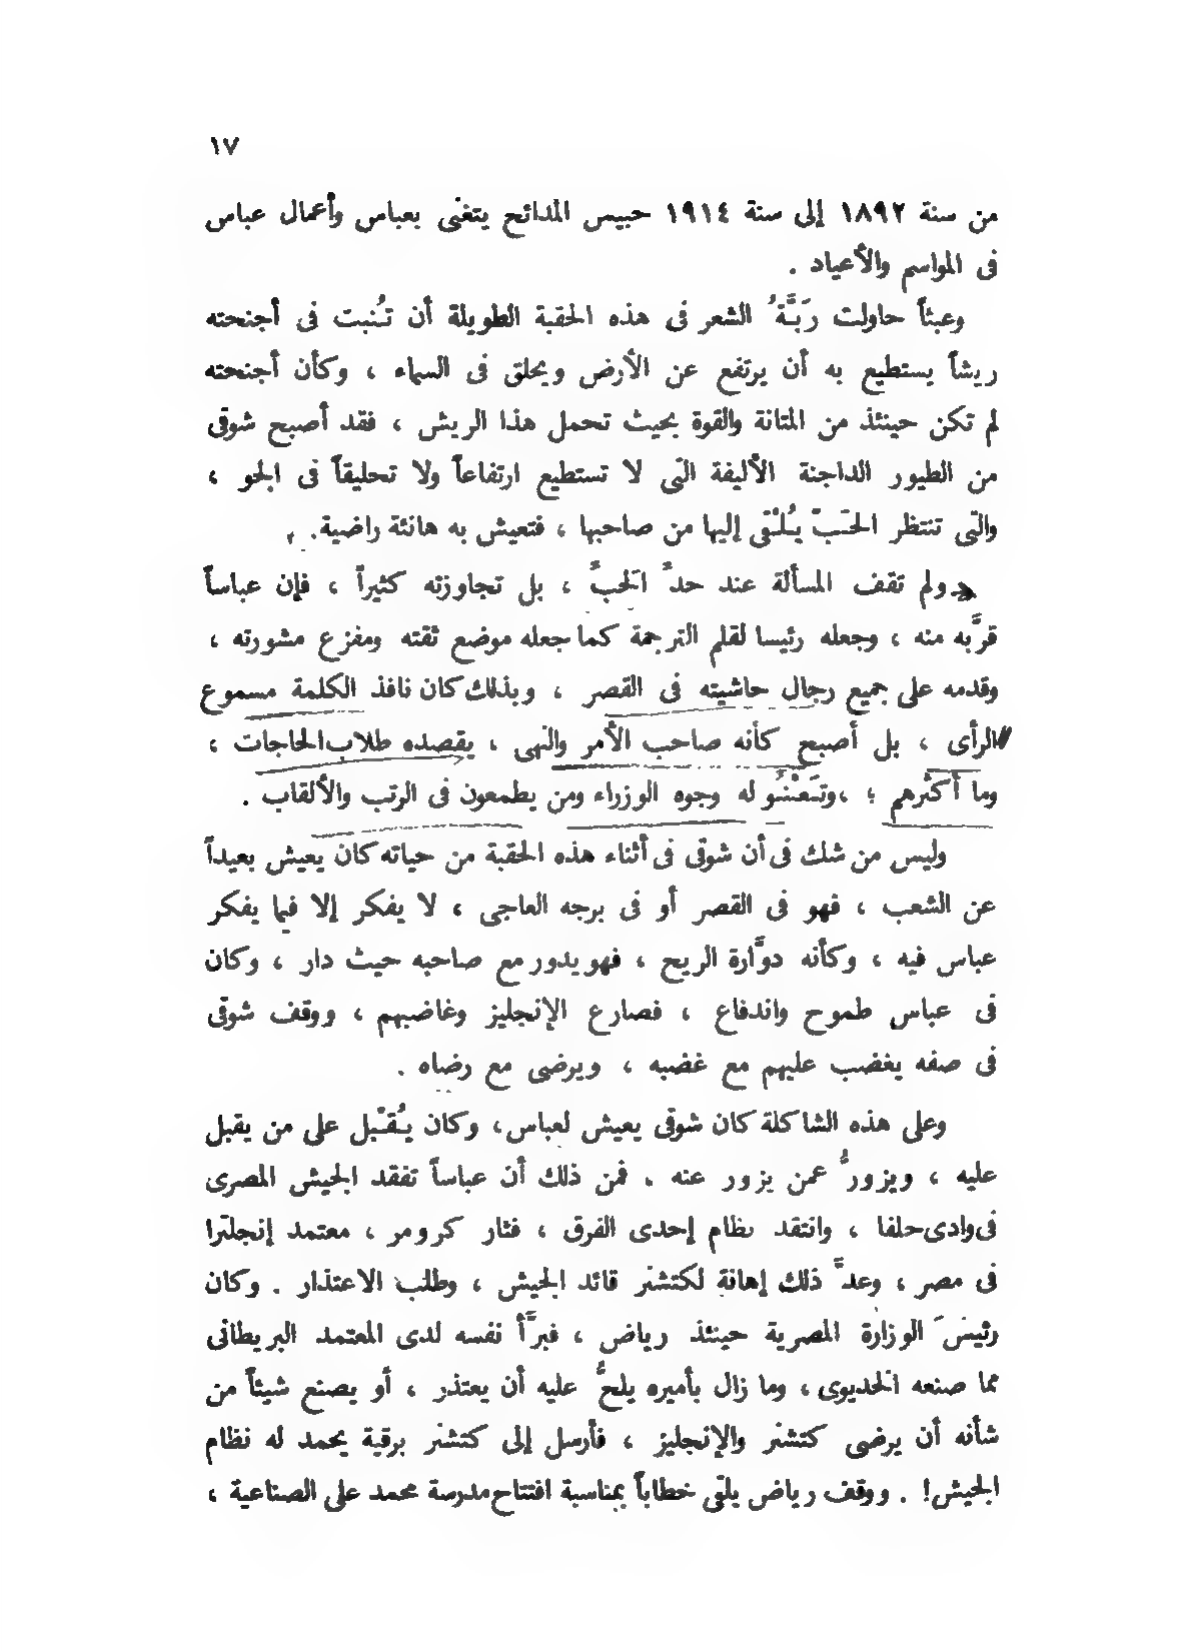 ١٧
من سنة ١٨٩٢ إلى سنة ١٩١٤ حبيس المدائح يتغنى بعباس وأعمال عباس
فى المواسم والأعياد .
وعبثاً حاولت رَبَّةُ الشعر فى هذه الحقبة الطويلة أن تُنبت فى أجنحته
ريشاً يستطيع به أن يرتفع عن الأرض ويحلق فى السماء ، وكأن أجنحته
لم تكن حينئذ من المتانة والقوة بحيث تحمل هذا الريش ، فقد أصبح شوقى
من الطيور الداجنة الأليفة التى لا تستطيع ارتفاعاً ولا تحليقاً فى الجو ،
والتى تنتظر الحَبّ يُلْقى إليها من صاحبها ، فتعيش به هانئة راضية .
ولم تقف المسألة عند حدِّ الحَبِّ ، بل تجاوزته كثيراً ، فإن عباساً
قرَّبه منه ، وجعله رئيسا لقلم الترجمة كما جعله موضع ثقته ومفزع مشورته ،
وقدمه على جميع رجال حاشيته فى القصر ، وبذلك كان نافذ الكلمة مسموع
الرأى ، بل أصبح كأنه صاحب الأمر والنهى ، يقصده طلاب الحاجات ،
وما أكثرهم ؛ ، وتَعْنُو له وجوه الوزراء ومن يطمعون فى الرتب والألقاب .
وليس من شك فى أن شوقى فى أثناء هذه الحقبة من حياته كان يعيش بعيداً
عن الشعب ، فهو فى القصر أو فى برجه العاجى ، لا يفكر إلا فيما يفكر
عباس فيه ، وكأنه دوَّارة الريح ، فهو يدور مع صاحبه حيث دار ، وكان
فى عباس طموح واندفاع ، فصارع الإنجليز وغاضبهم ، ووقف شوقى
فى صفه يغضب عليهم مع غضبه ، ويرضى مع رضاه .
وعلى هذه الشاكلة كان شوقى يعيش لعباس، وكان يُقْبل على من يقبل
عليه ، ويزورُّ عمن يزور عنه . فمن ذلك أن عباساً تفقد الجيش المصرى
فى وادى حلفا ، وانتقد نظام إحدى الفرق ، فثار كرومر ، معتمد إنجلترا
فى مصر ، وعدَّ ذلك إهانة لكتشنر قائد الجيش ، وطلب الاعتذار . وكان
رئيسَ الوزارة المصرية حينئذ رياض ، فبرَّأ نفسه لدى المعتمد البريطانى
مما صنعه الخديوى ، وما زال بأميره يلحُّ عليه أن يعتذر ، أو يصنع شيئاً من
شأنه أن يرضى كتشنر والإنجليز ، فأرسل إلى كتشنر برقية يحمد له نظام
الجيش! . ووقف رياض يلقى خطاباً بمناسبة افتتاح مدرسة محمد على الصناعية ،